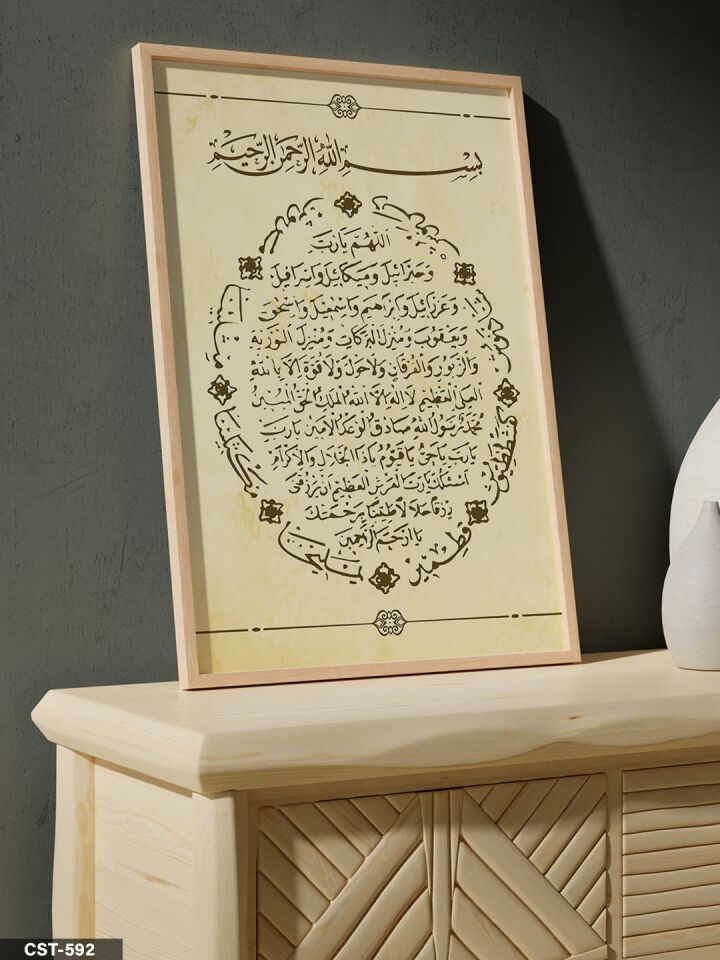 بسم الله الرحمن الرحيم
اللهم يا رب
وجبرائيل وميكائيل واسرافيل
وعزرائيل وابراهيم واسمعيل واسحق
ويعقوب ومنزل البركات ومنزل التورية
والزبور والفرقان ولا حول ولا قوة الا بالله
العلى العظيم لا اله الا الله الملك الحق المبين
محمد رسول الله صادق الوعد الامين يا رب
يا رب يا حى يا قيوم يا ذا الجلال والاكرام
اسئلك يا رب العرش العظيم ان يرزقنى
رزقا حلالا طيبا برحمتك
يا ارحم الراحمين
يمليخا
قطمير
CST-592